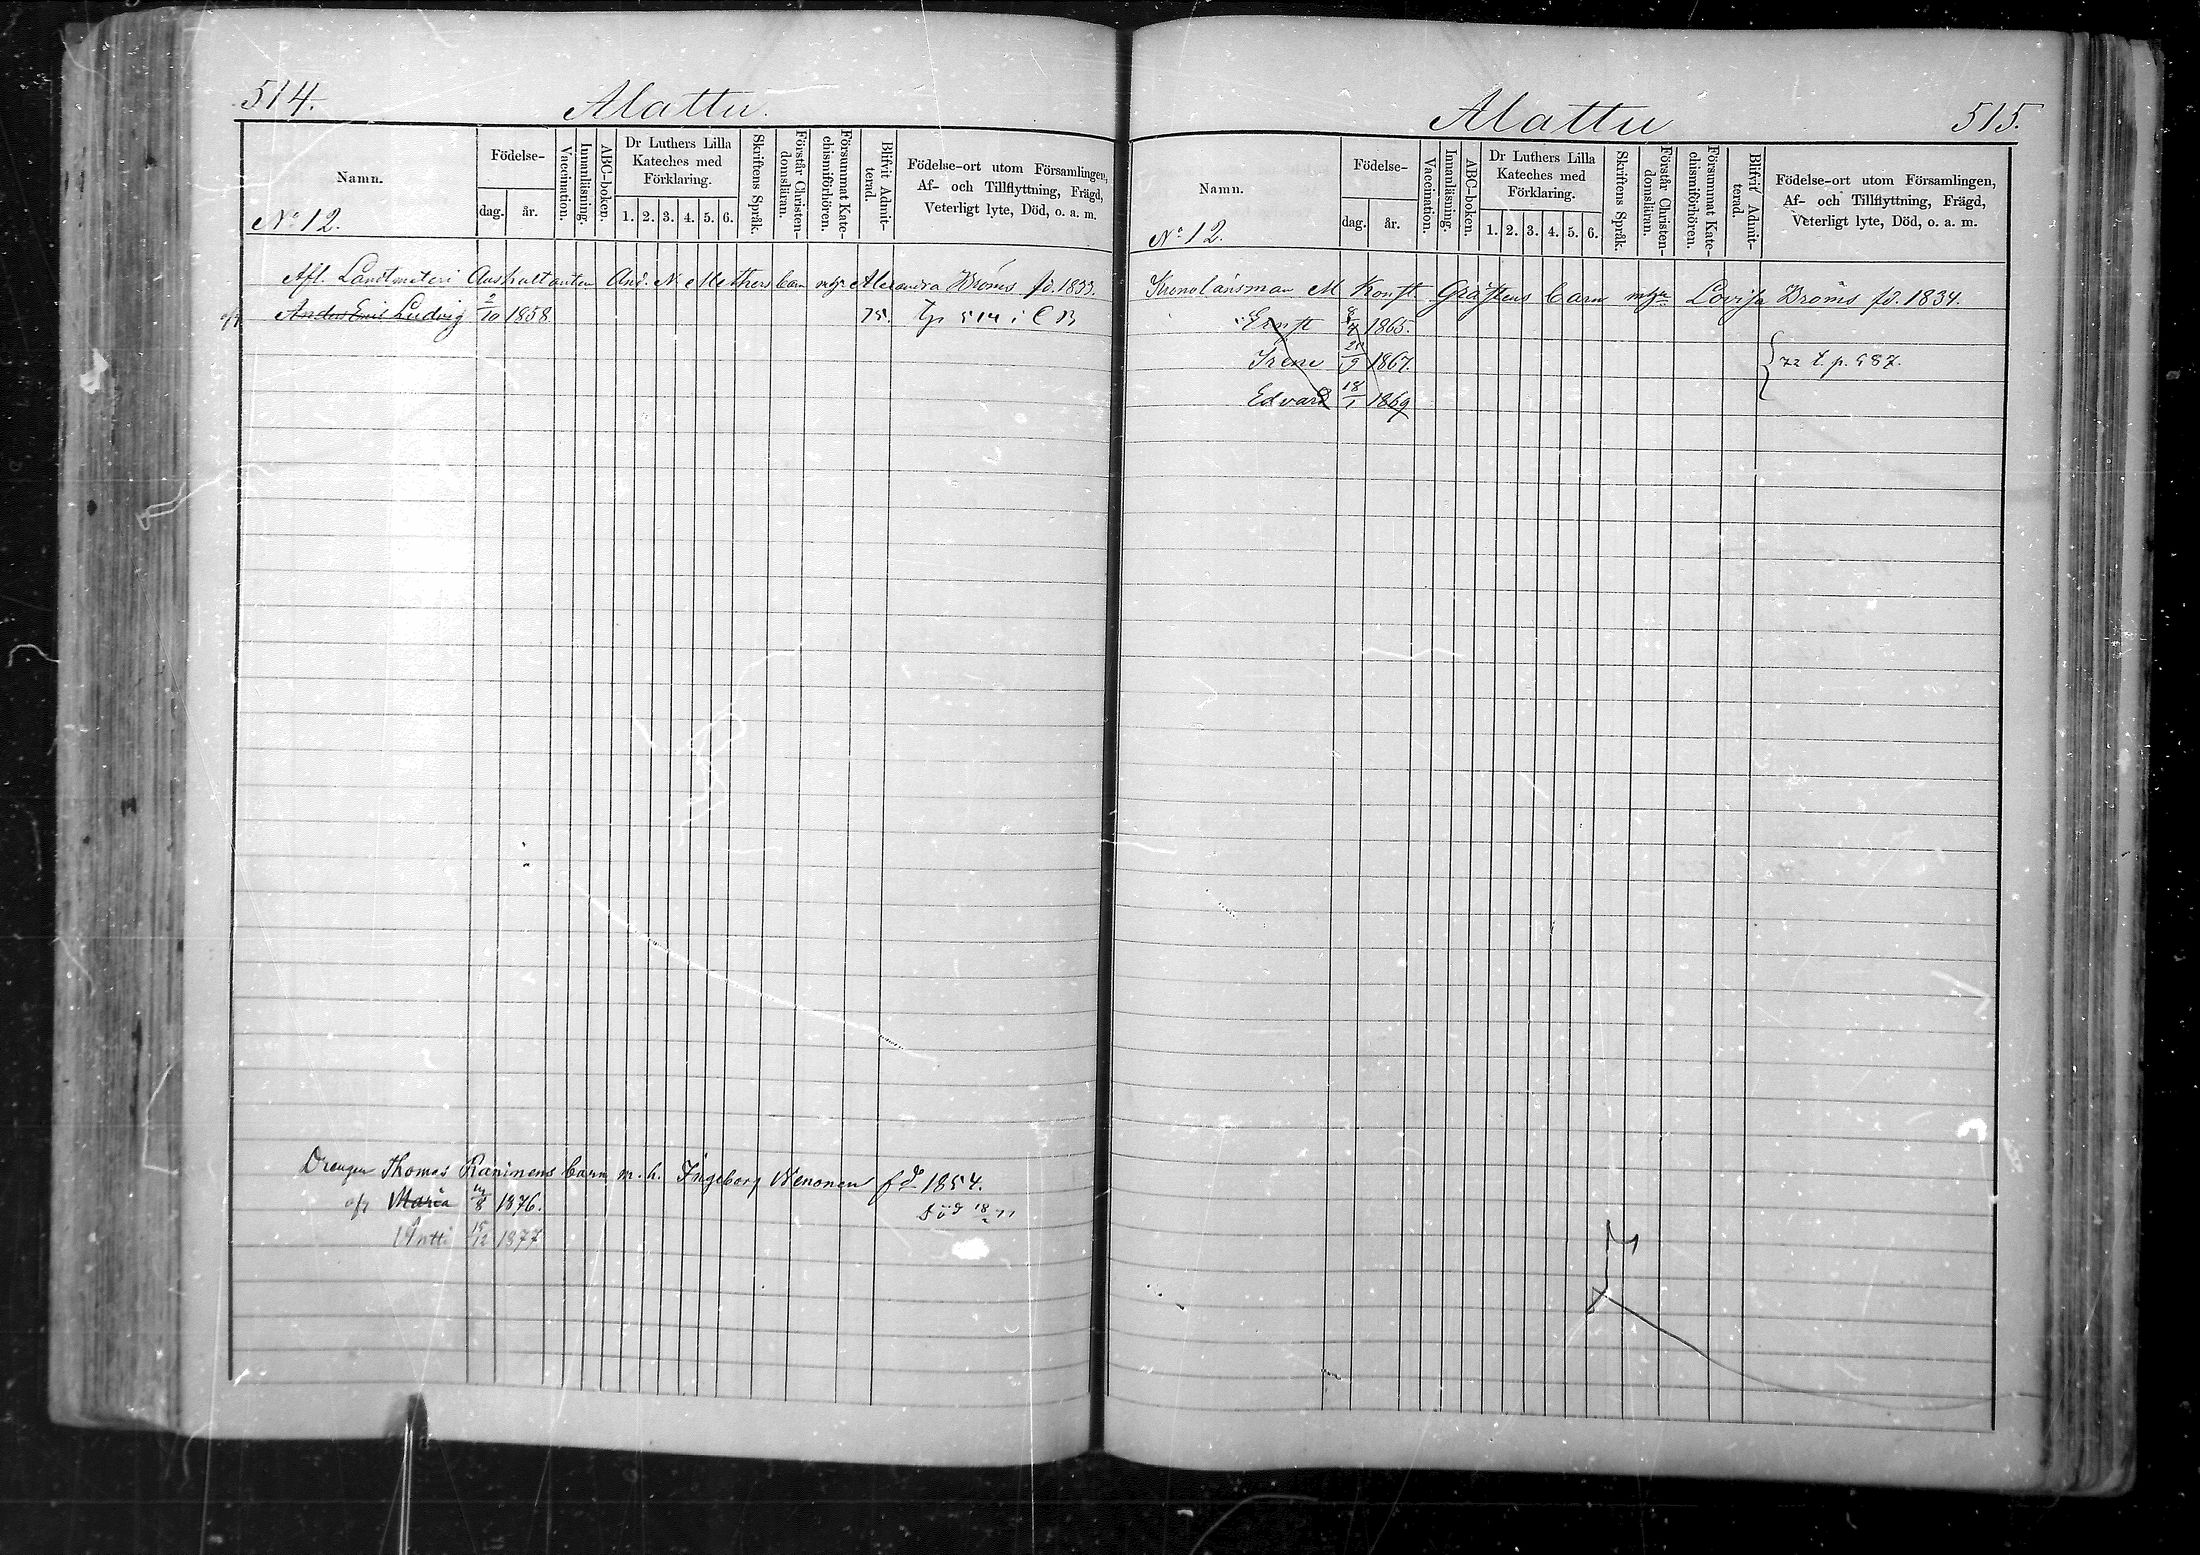 514.
Alattu.
Namn.
Födelse-
dag. år.
Vaccination.
Innanläsning.
ABC-boken.
Dr Luthers Lilla
Kateches med
Förklaring.
1. 2. 3. 4. 5. 6.
Skriftens Språk.
Förstår Christen-
domsläran.
Försummat Kate-
chismiförhören.
Blifvit Admit-
terad.
Födelse-ort utom Församlingen,
Af- och Tillflyttning, Frägd,
Veterligt lyte, Död, o. a. m.
No 12.
Afl. Landtmäteri Auskultanten And. N. Methers barn m. Alexandra Broms fd. 1833.
afs Anders Emil Ludvig 2/10 1858. 75. Tp 514 i CB
Drengen Thomas Räninens barn m. h. Ingeborg Nenonen fd 1854.
afs Maria 14/8 1876. död 18/2 77
Antti 15/12 1877
Alattu
515.
Namn.
Födelse-
dag. år.
Vaccination.
Innanläsning.
ABC-boken.
Dr Luthers Lilla
Kateches med
Förklaring.
1. 2. 3. 4. 5. 6.
Skriftens Språk.
Förstår Christen-
domsläran.
Försummat Kate-
chismiförhören.
Blifvit Admit-
terad.
Födelse-ort utom Församlingen,
Af- och Tillflyttning, Frägd,
Veterligt lyte, Död, o. a. m.
No 12.
Kronolänsman M Konst. Gräftens barn Lovisa Broms fd. 1834.
Ernst 8/4 1865.
Irene 21/9 1867. 72 t. p. 987.
Edvard 18/1 1869